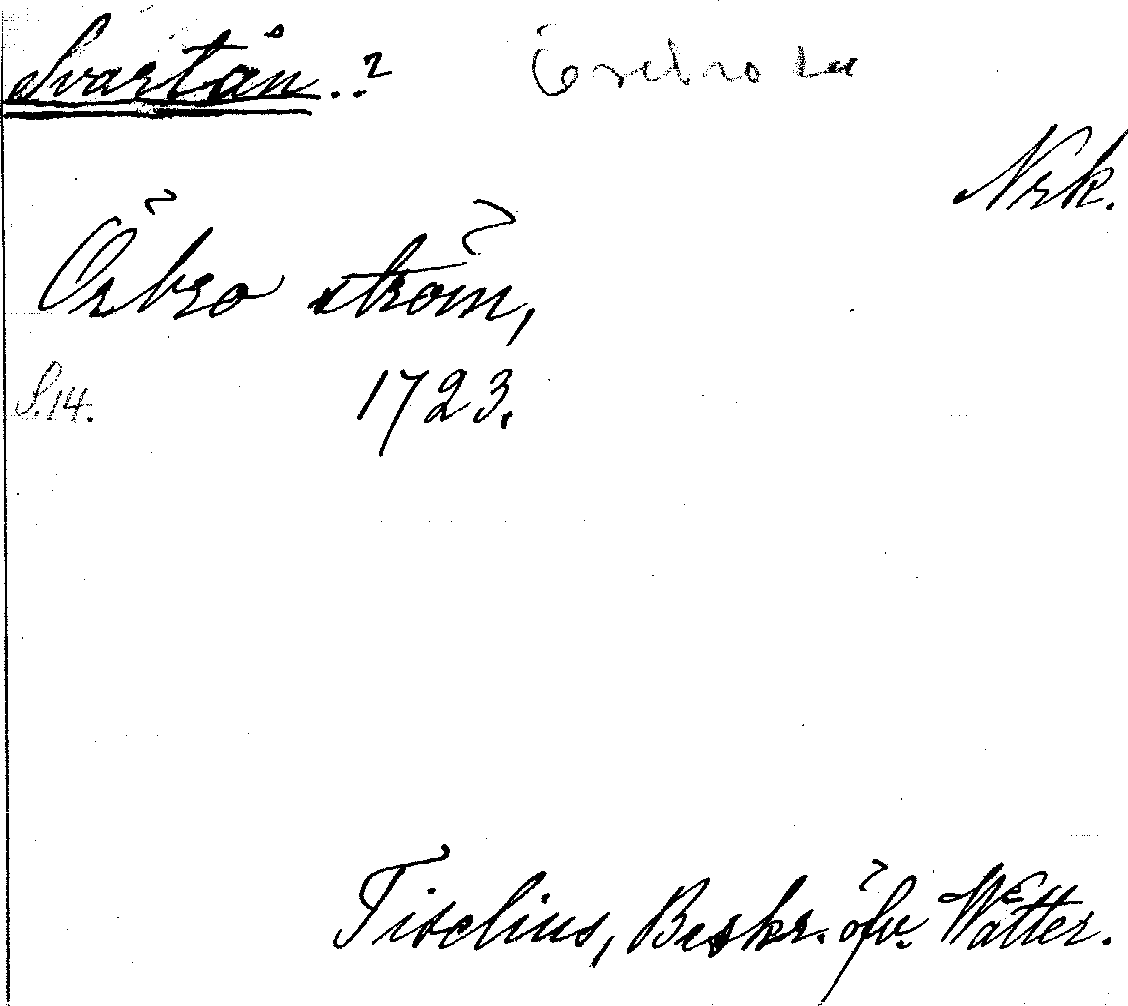 Svartån..? Örebro
Nrk.
Örbro ström,
S.14. 1723.
Tiselius, Beskr. öfv. Wätter.